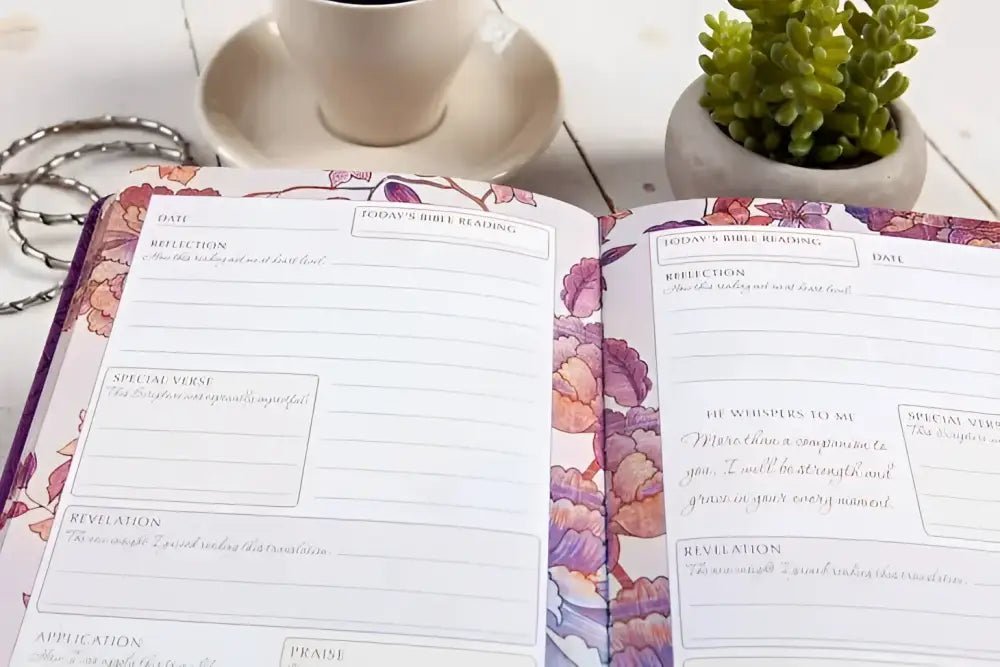 DATE
TODAY'S BIBLE READING
REFLECTION
How this reading met me at heart level.
SPECIAL VERSE
This Scripture was especially
REVELATION
The new insight I gained reading this translation.
APPLICATION
PRAISE
TODAY'S BIBLE READING
DATE
REFLECTION
How this reading met me at heart level.
HE WHISPERS TO ME
More than a companion to
you, I will be strength and
grace in your every moment.
SPECIAL
This Scripture
REVELATION
The new insight I gained reading this translation.